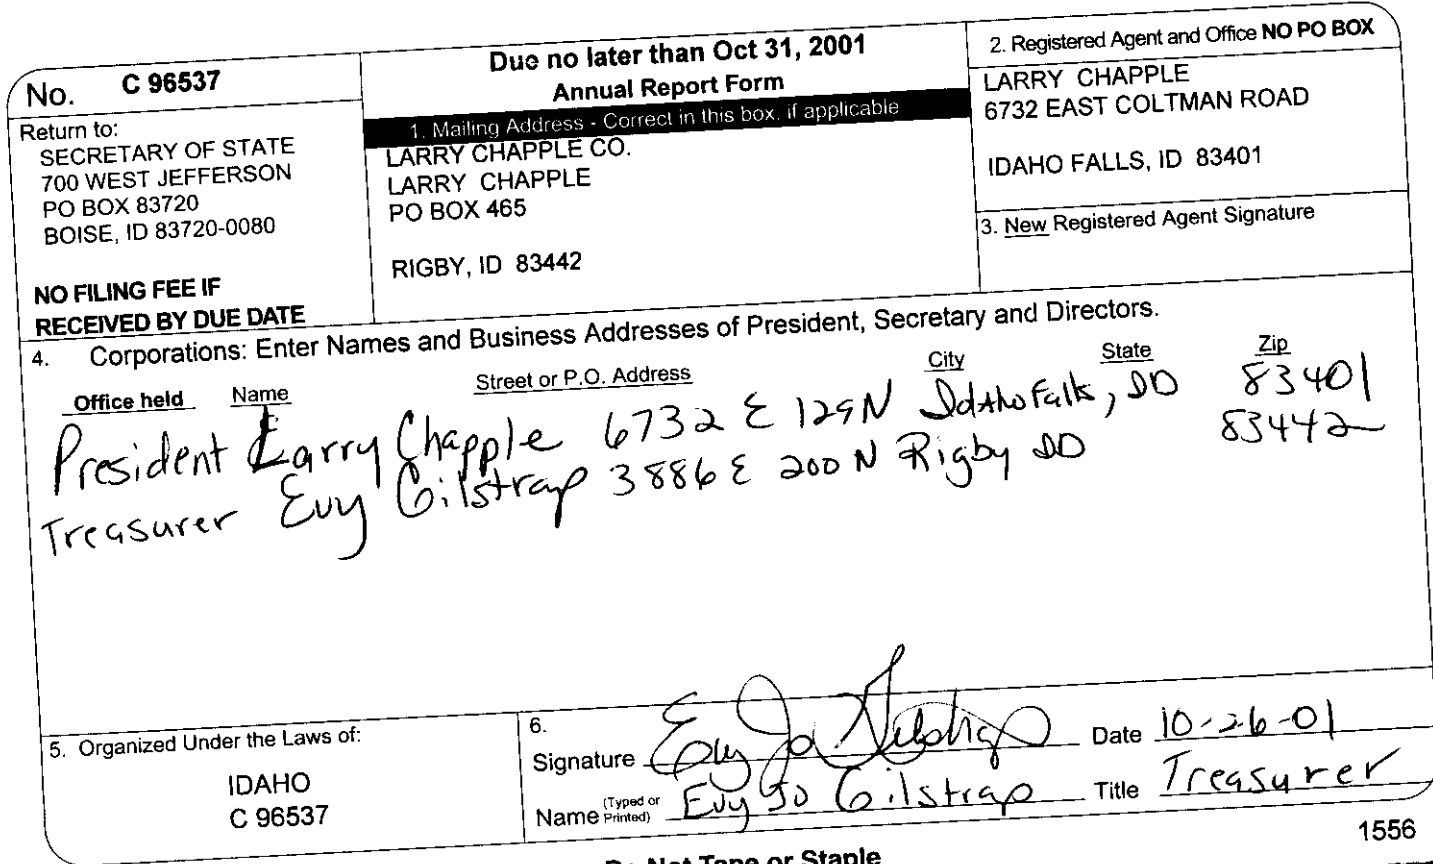 No. C 96537
Return to:
SECRETARY OF STATE
700 WEST JEFFERSON
PO BOX 83720
BOISE, ID 83720-0080
NO FILING FEE IF
RECEIVED BY DUE DATE
Due no later than Oct 31, 2001
Annual Report Form
1. Mailing Address - Correct in this box, if applicable
LARRY CHAPPLE CO.
LARRY CHAPPLE
PO BOX 465
RIGBY, ID 83442
2. Registered Agent and Office NO PO BOX
LARRY CHAPPLE
6732 EAST COLTMAN ROAD
IDAHO FALLS, ID 83401
3. New Registered Agent Signature
4. Corporations: Enter Names and Business Addresses of President, Secretary and Directors.
Office held Name Street or P.O. Address City State Zip
President Larry Chapple 6732 E 129N Idaho Falls, ID 83401
Treasurer Evy Gilstrap 3886 E 200 N Rigby ID 83442
5. Organized Under the Laws of:
IDAHO
C 96537
6.
Signature Evy Jo Gilstrap Date 10-26-01
Name (Typed or Printed) Evy Jo Gilstrap Title Treasurer
1556
Do Not Tape or Staple